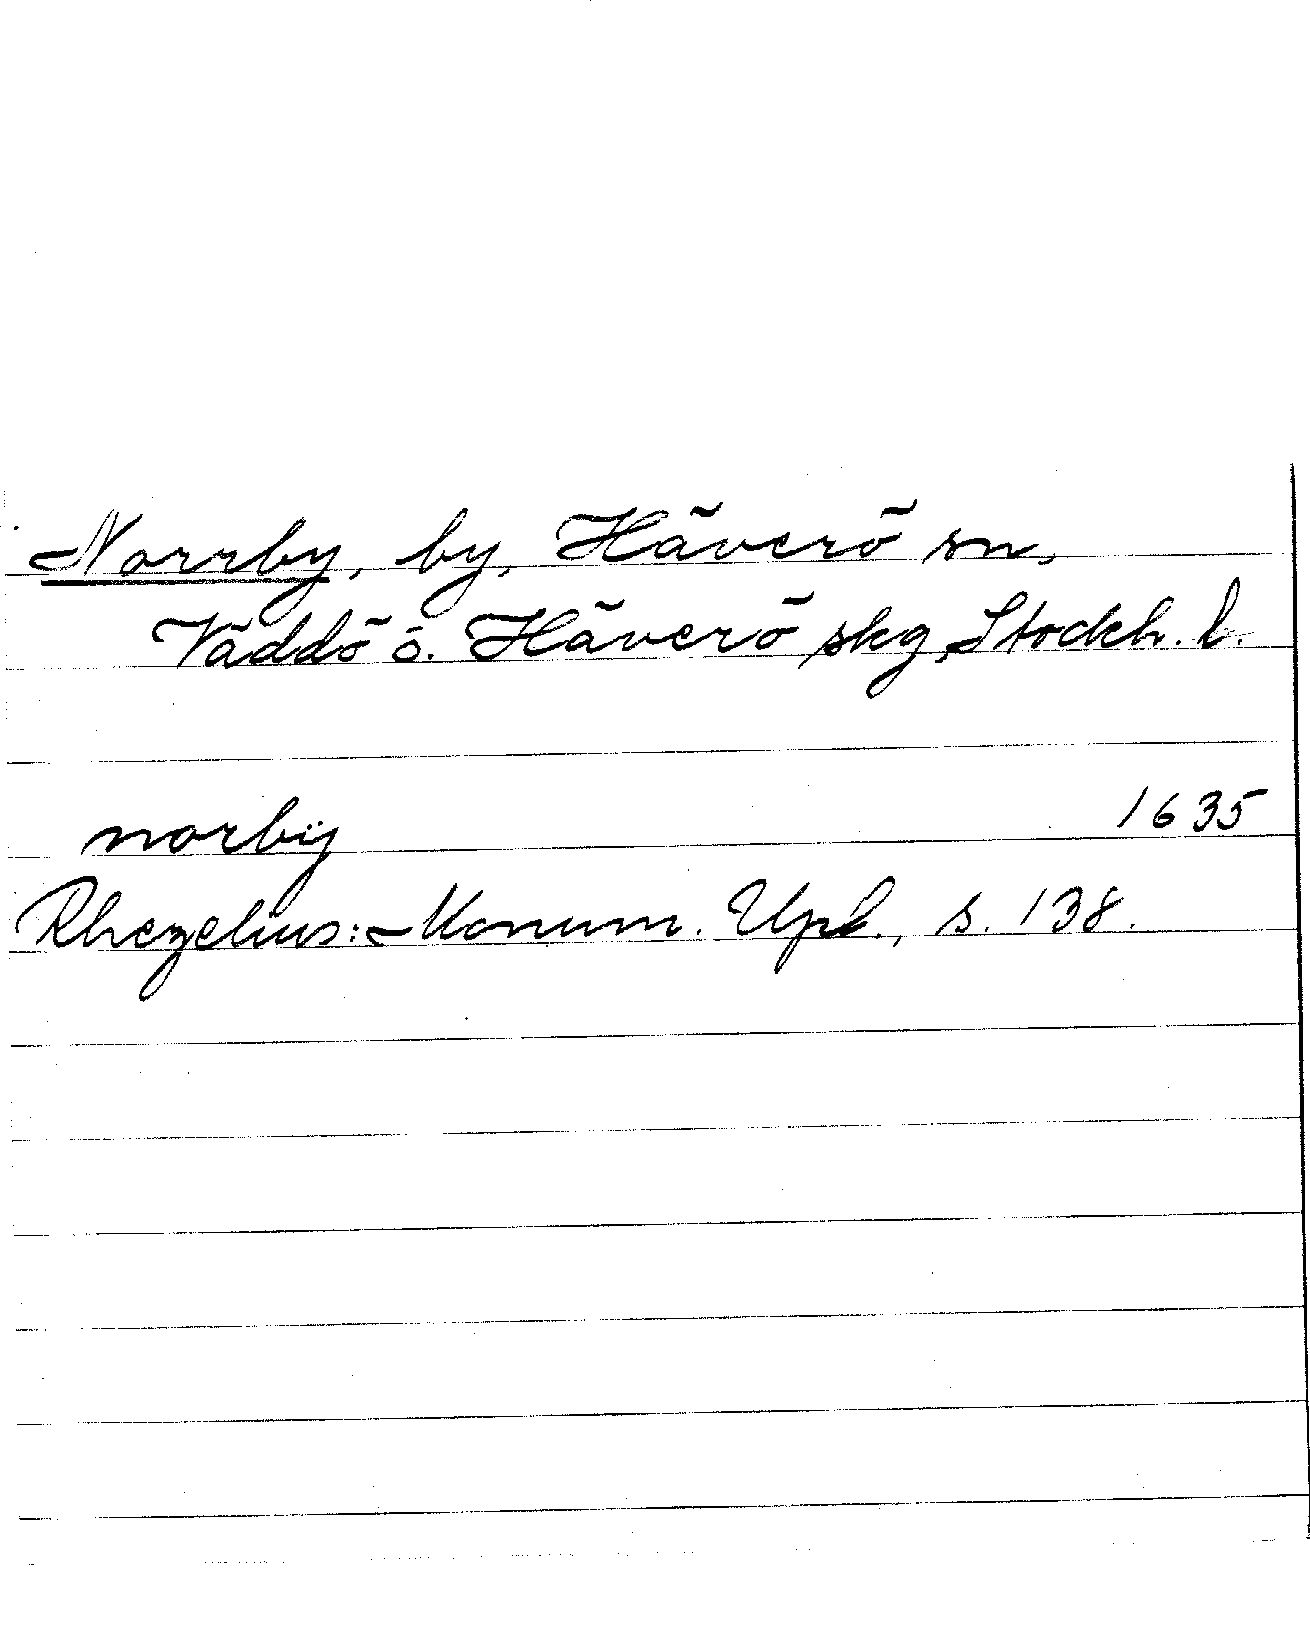 Norrby, by, Häverö sn,
Väddö o. Häverö skg, Stockh. l.
norbÿ 1635
Rhezelius: Monum. Upl., s. 138.